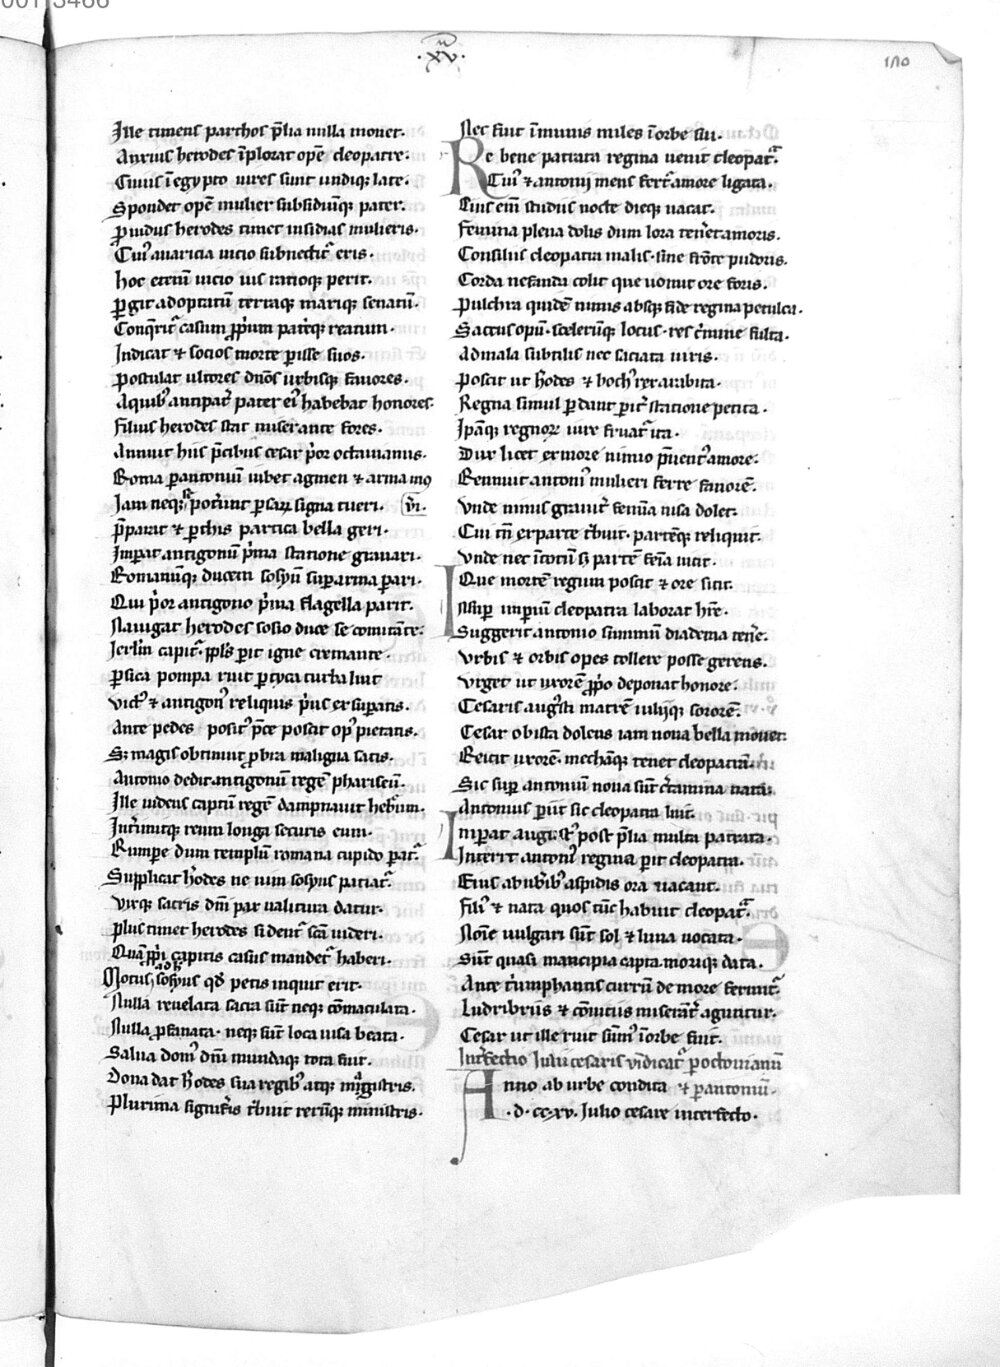 ·xv·
Ille timens parthos p̄lia nulla mouet·
Anxius herodes īplorat opē cleopatre·
Cuius ī egypto uires sunt undiqꝫ late·
Spondet opē mulier subsidiūqꝫ pater·
ꝓuidus herodes timet insidias mulieris·
Cuiꝰ auaricia uicio subnectit᷑ eris·
Hoc etenī uicio ius ratioqꝫ perit·
ꝑgit adoptatū terraqꝫ mariqꝫ senatū·
Conq̄rit᷑ casum ꝓpriūm patʳqꝫ reatum·
Indicat ⁊ socios morte ꝑisse suos·
Postulat ultores dn̄os urbisqꝫ fauores·
A quibꝰ antipat᷑ pater eiꝰ habebat honores·
Filius herodes stat miserante fores·
Annuit hiis p̄cibus cesar p̄or octauianus·
Roma ꝑ antoniū iubet agmen ⁊ arma
Iam neqꝫ poterūnt ꝑsaꝝ signa tueri·
p̄parat ⁊ ꝑthis partica bella geri·
Imꝑat antigonū p̄ma statione grauari·
Romanūqꝫ ducem sosyū suꝑ arma pari·
Qui p̄or antigono p̄ma flagella parit·
Nauigat herodes sosio duce se comitāte·
Ierl̄m capit᷑ ppl̄s ꝑit igne cremante·
ꝑsica pompa ruit ꝑtyca turba luit
Victꝰ ⁊ antigonꝰ reliquis p̄us exsuꝑatis·
Ante pedes positꝰ p̄ce poscit opꝰ pietatis·
Sꝫ magis obtinuit ꝓbra maligna satis·
Antonio dedit antigonū regē phariseū·
Ille uidens captū regē dampnauit heb̄um·
Int̄imitqꝫ reum longa securis eum·
Rumpe dum templū romana cupido parat᷑
Supplicat h̄odes ne uim sosyus patiat᷑
Virqꝫ sacris dm̄ par ualitura datur·
Plus timet herodes si dent᷑ sc̄a uideri·
Quā pp̄i capitis casus mandet᷑ haberi·
Motus, sosyus qd̄ petis inquit erit·
Nulla reuelata sacra sūt neqꝫ cōmaculata·
Nulla ꝓfanata· neqꝫ sūt loca iusa beata·
Salua domꝰ dm̄ mundaqꝫ tota fuit·
Dona dat h̄odes sua regibꝰ atqꝫ mḡistris·
Plurima signif̄is t̄buit rerūqꝫ ministris·
Nec fuit īmunis miles ī orbe sui·
Re bene patrata regina uenit cleopat᷑
Cuiꝰ ⁊ antonij mens fert᷑ amore ligata·
Eius eni studiis nocte dieqꝫ uacat·
Femina plena dolis dum lora tenet amoris·
Consiliis cleopatra malis· sine frōte pudoris·
Corda nefanda colit que uomit ore foris·
Pulchra quidē nimis absqꝫ fide regina petulca·
Saccus opū· scelerūqꝫ locus· res c̄mine fulta·
Ad mala subtilis nec saciata uiris·
Poscit ut h̄odes ⁊ boch rex arabita·
Regna simul ꝑdant ꝑit᷑ statione petita·
Ipāqꝫ regnoꝝ iure fruat᷑ ita·
Dux licet ex more nimio p̄uent᷑ amore·
Rennuit antoniꝰ mulieri ferre fauorē·
Vnde nimis grauit᷑ femina uisa dolet·
Cui tn̄ ex parte t̄buit· partēqꝫ reliquit·
Vnde nec ī totū sꝫ partē fēīa uicit·
Que mortē regum poscit ⁊ ore sitit·
Insuꝑ imperiū cleopatra laborat hr̄e·
Suggerit antonio summū diadema ten̄e·
Vrbis ⁊ orbis opes tollere posse gerens·
Vrget ut uxorē pp̄o deponat honore·
Cesaris augusti matrē iuliiqꝫ sororē·
Cesar ob ista dolens iam noua bella mouet·
Reicit uxorē· mechāqꝫ tenet cleopatrā·
Sic suꝑ antoniū noua sūt c̄tamina nata·
Antonius ꝑiit sic cleopatra luit·
Imꝑat augustꝰ post p̄lia multa patrata·
Interit antonꝰ regina ꝑit cleopatra·
Eius ab ub̄ibꝰ aspidis ora uacant·
Filiꝰ ⁊ nata quos tūc habuit cleopat᷑
Nomine uulgari sūt sol ⁊ luna uocata·
Sūt quasi mancipia capta moriqꝫ data·
Ante t̄umphantis currū de more ferunt᷑
Ludibriis ⁊ cōuiciis miserant᷑ aguntur·
Cesar ut ille ruit sūmꝰ ī orbe fuit·
Int̄fectio Iulii cesaris vīdicat᷑ ꝑ octouianū
Anno ab urbe condita ⁊ ꝑ antoniū·
·d·cc·xv· Iulio cesare interfecto·